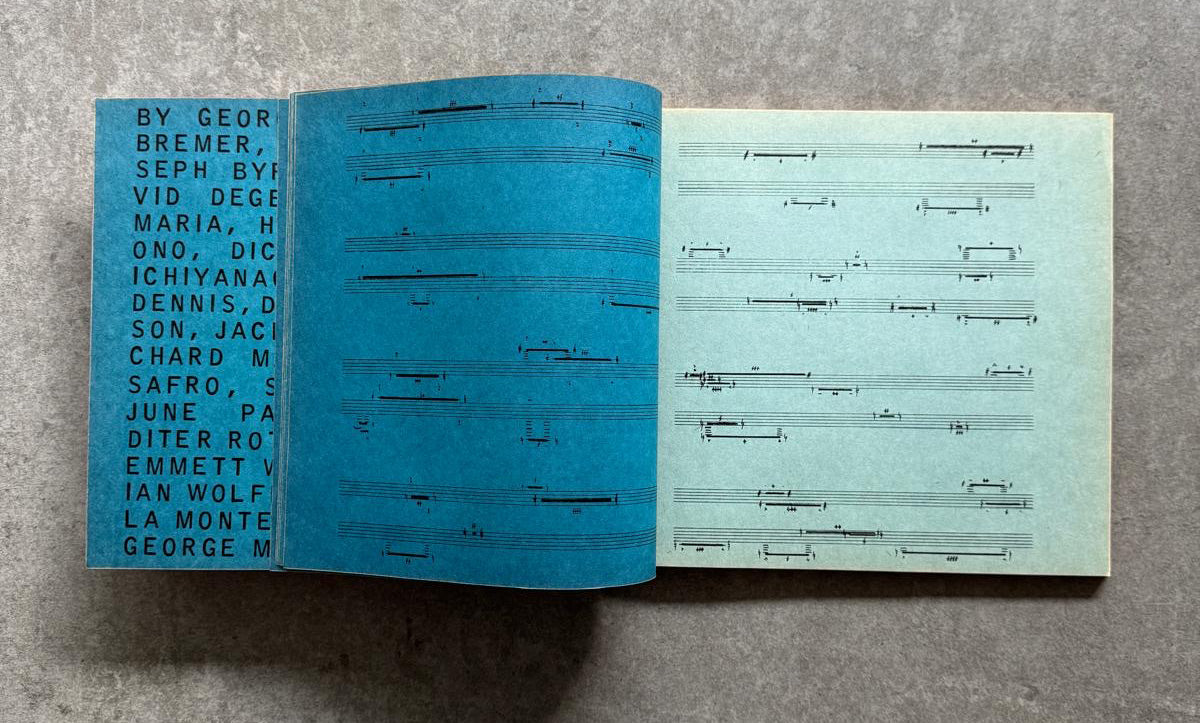 BY GEOR
BREMER,
SEPH BY
VID DEGE
MARIA, H
ONO, DIC
ICHIYANA
DENNIS, D
SON, JAC
CHARD M
SAFRO, S
JUNE PA
DITER ROT
EMMETT W
IAN WOLF
LA MONTE
GEORGE M